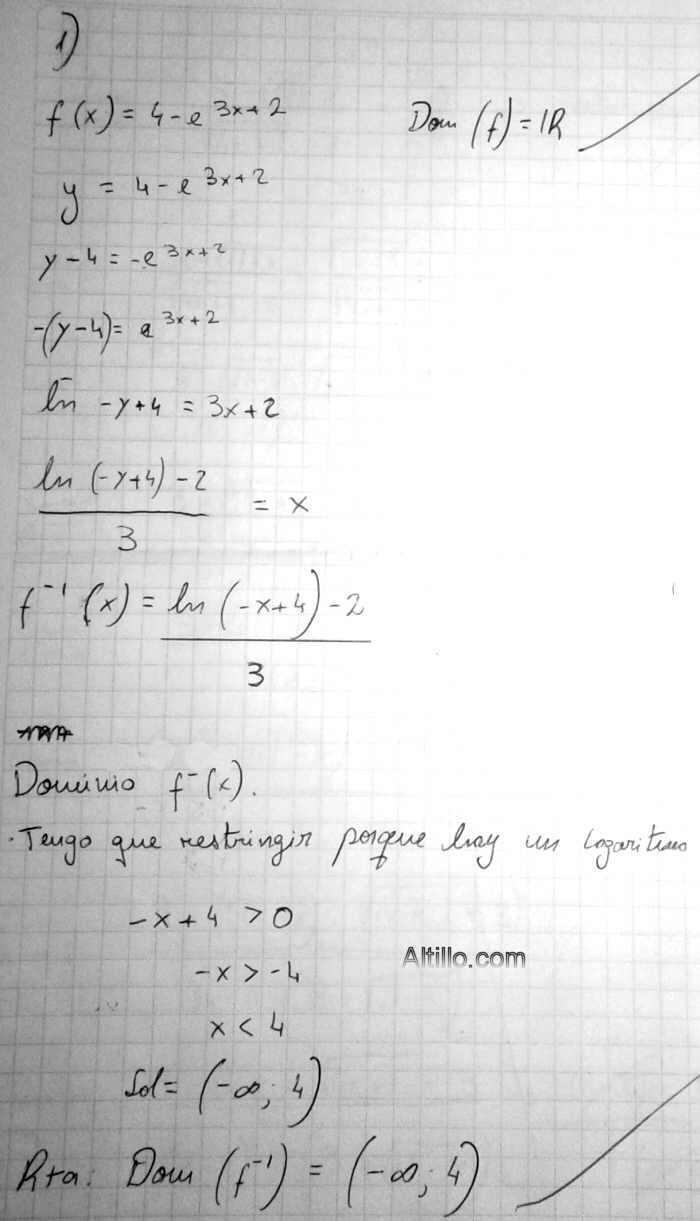 1)
f(x) = 4 - e^{3x+2} Dom (f) = IR
y = 4 - e^{3x+2}
y - 4 = -e^{3x+2}
-(y-4) = e^{3x+2}
ln -y+4 = 3x+2
\frac{ln (-y+4) - 2}{3} = x
f^{-1}(x) = \frac{ln (-x+4) - 2}{3}
Dominio f^{-}(x).
· Tengo que restringir porque hay un logaritmo
-x + 4 > 0
-x > -4
x < 4
Altillo.com
Sol = (-∞; 4)
Rta: Dom (f^{-1}) = (-∞; 4)